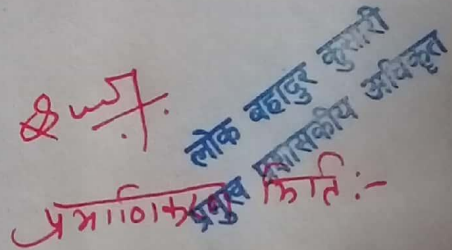 लोक बहादुर कुसारी
प्रमुख प्रशासकीय अधिकृत
प्रमाणिकरण मिति :-